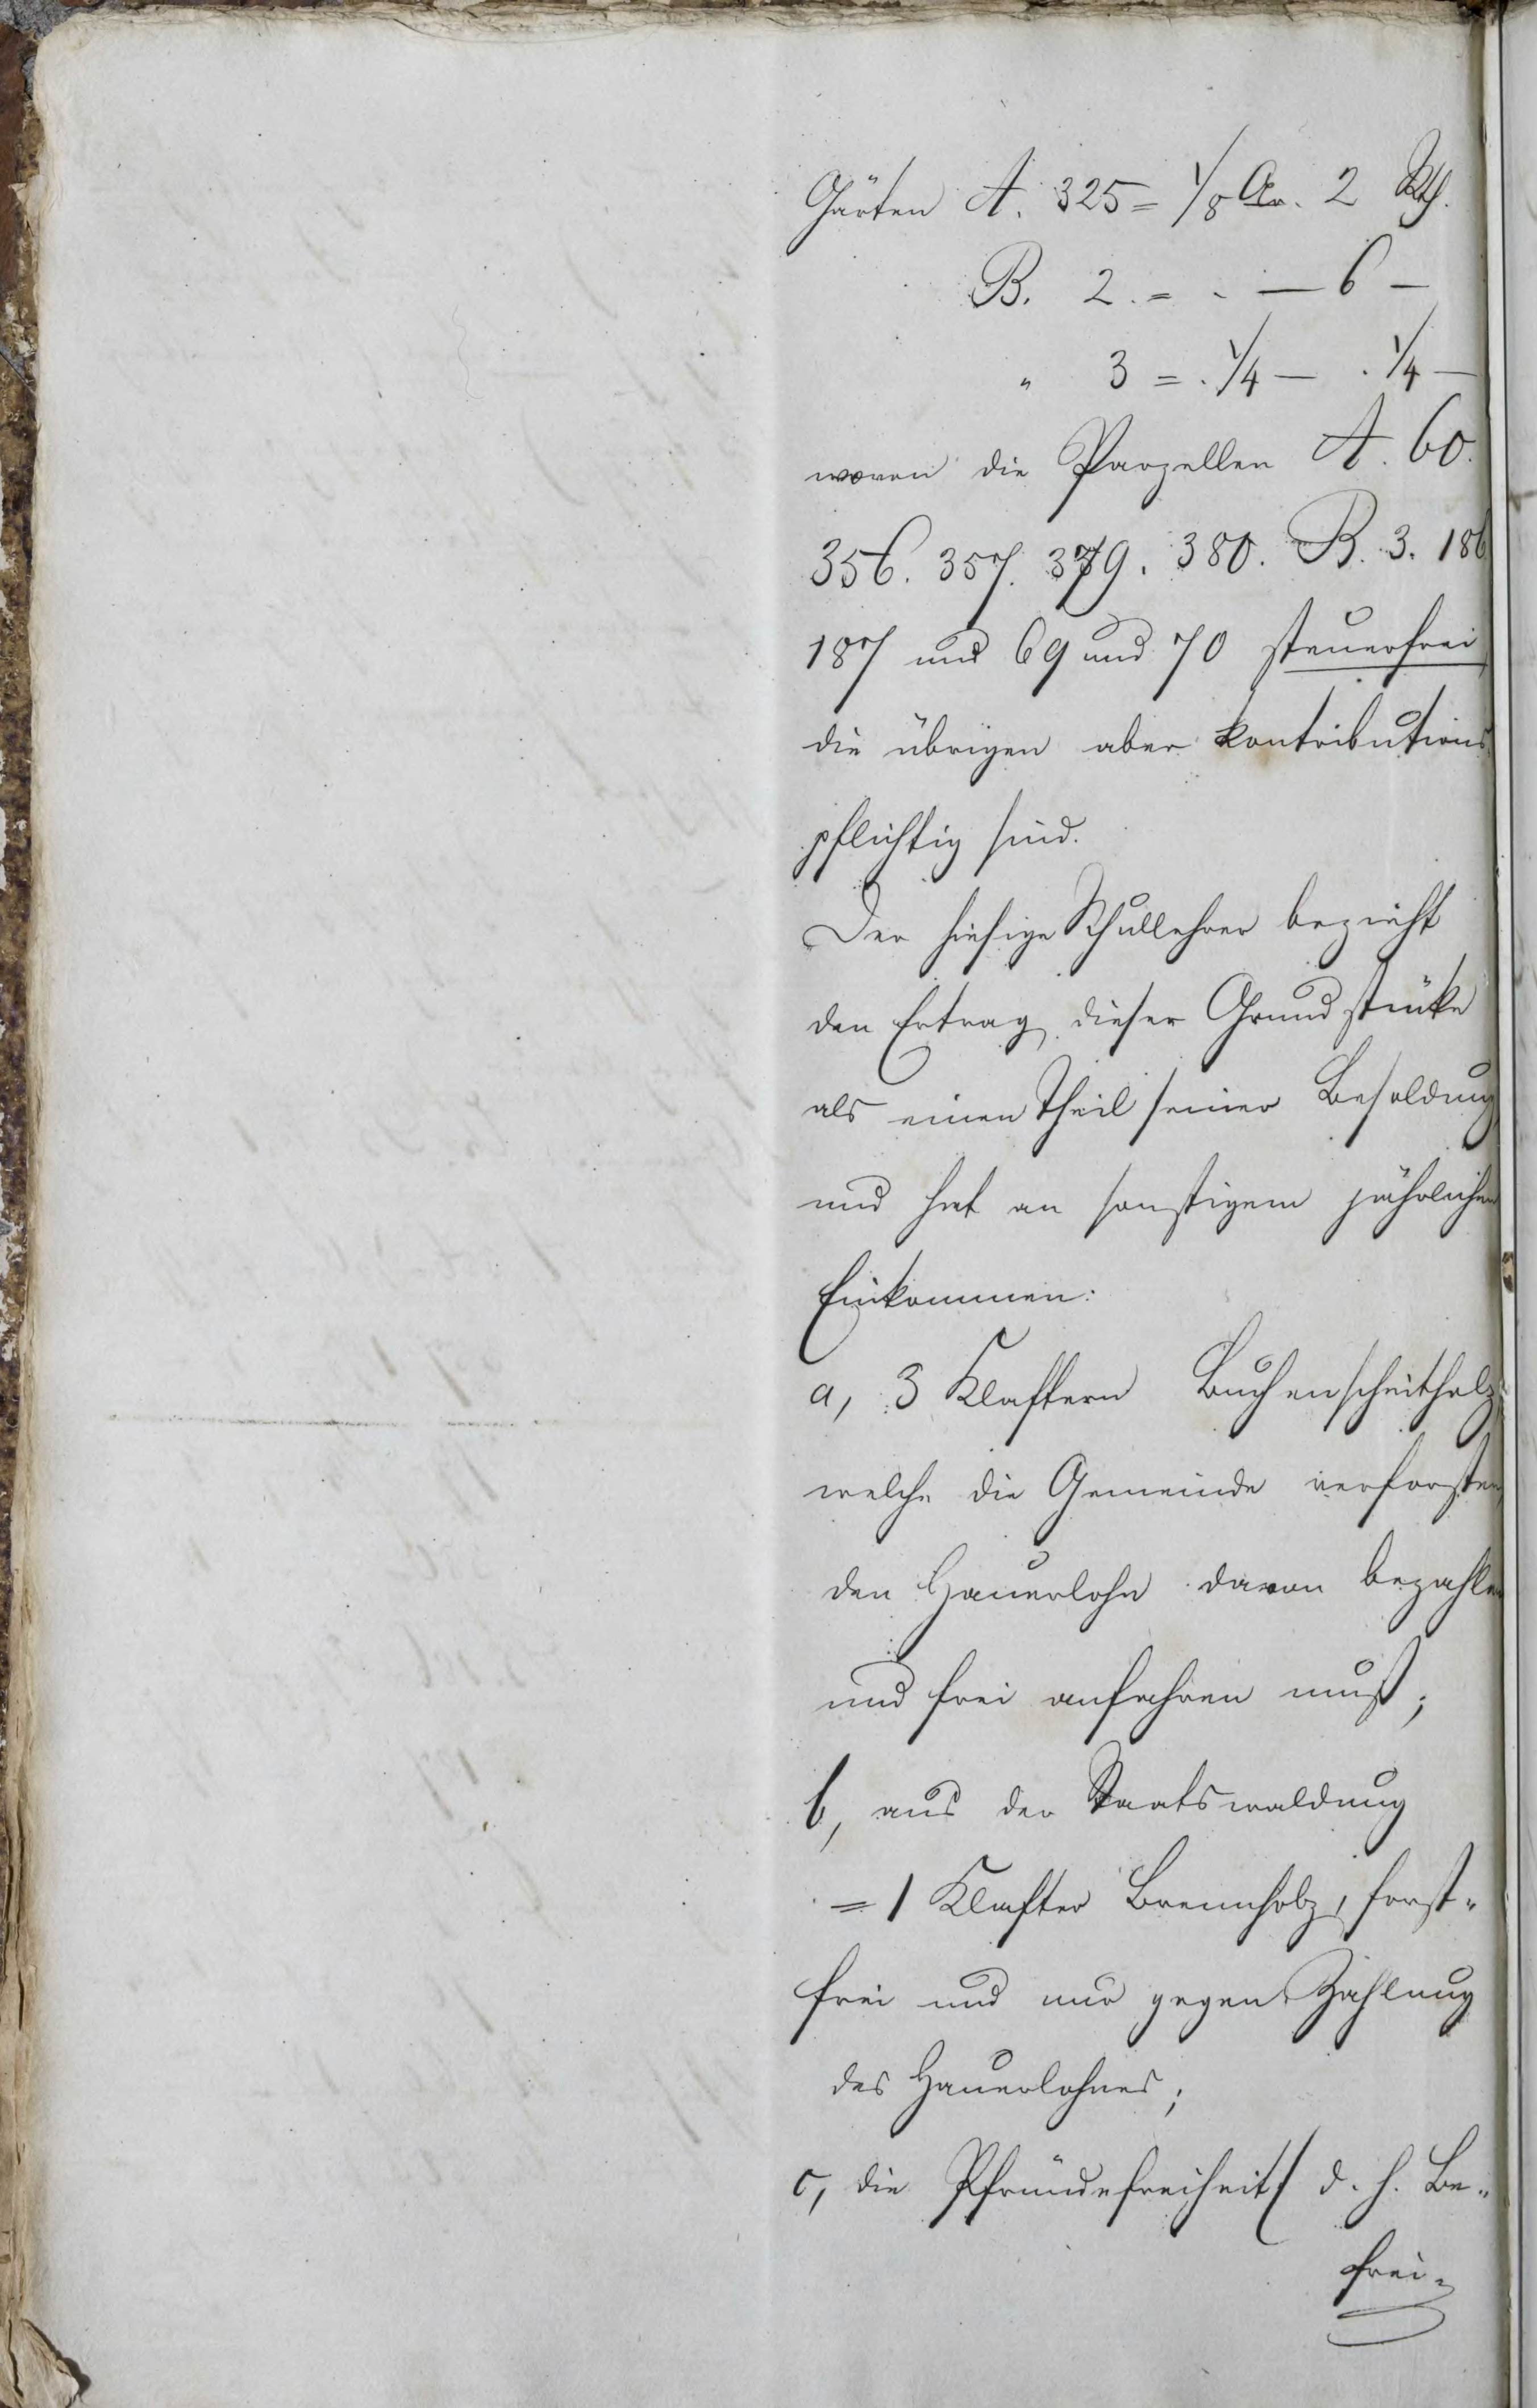 Gärten A. 325 = 1/8 Ar. 2 Rth.
B. 2. = . — 6 —
" 3 = . 1/4 — . 1/4 —
wovon die Parzellen A. 60.
356. 357. 379. 380. B. 3. 186
187 und 69 und 70 steuerfrei
die übrigen aber kontributions
pflichtig sind.
Der hiesige Schullehrer bezieht
den Ertrag dieser Grundstüke
als einen Theil seiner Besoldung
und hat an sonstigem jährlichen
Einkommen:
a, 3 Klaftern Buchenscheitholz,
welche die Gemeinde verforsten,
den Hauerlohn davon bezahlen
und frei anfahren muß;
b, aus der Staatswaldung
= 1 Klafter Brennholz, forst-
frei und nur gegen Zahlung
des Hauerlohnes;
c, die Pfründefreiheit (d. h. Be-
frei-